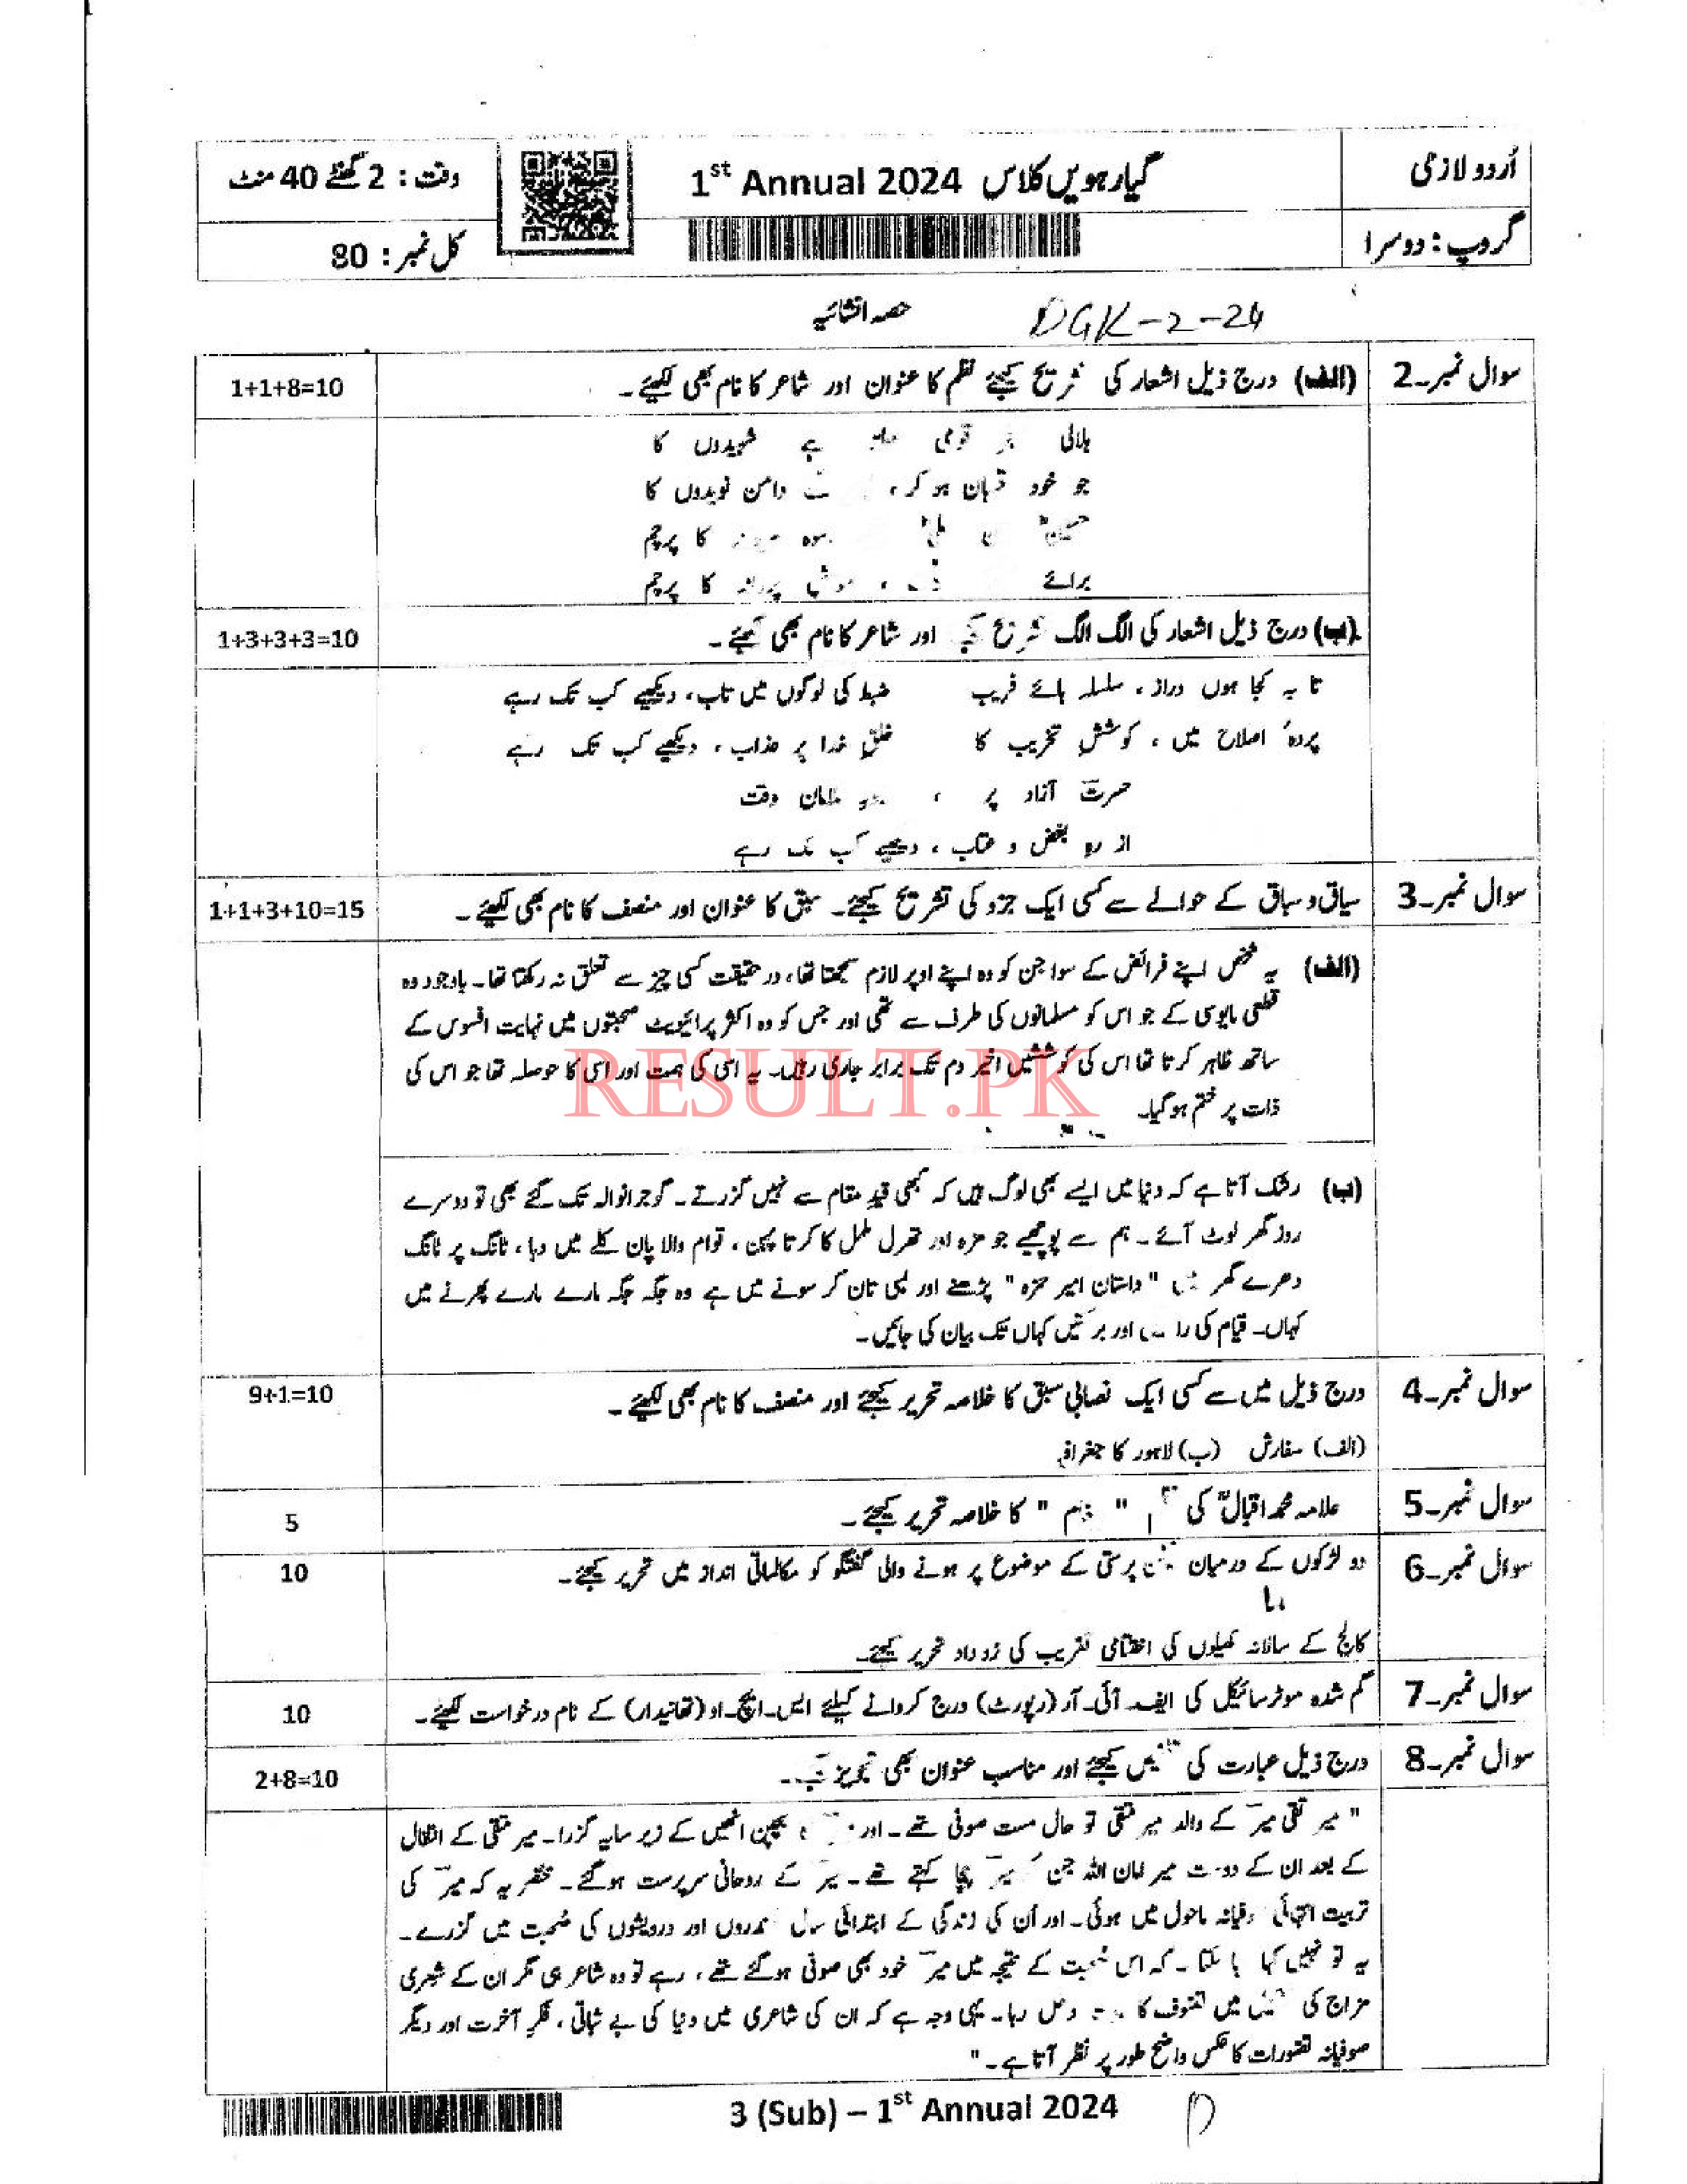 اُردو لازمی
گیارہویں کلاس 1st Annual 2024
وقت: 2 گھنٹے 40 منٹ
گروپ: دوسرا
کل نمبر: 80
حصہ انشائیہ
DGK-2-24
سوال نمبر۔2 (الف) درج ذیل اشعار کی تشریح کیجئے نظم کا عنوان اور شاعر کا نام بھی لکھئے۔ 1+1+8=10
ہلالی قومی ہے شہیدوں کا
جو خود قربان ہو کر، دامن نویدوں کا
کا پرچم
برائے کا پرچم
(ب) درج ذیل اشعار کی الگ الگ تشریح کیجئے اور شاعر کا نام بھی لکھئے۔ 1+3+3+3=10
تا بہ کجا ہوں دراز، سلسلہ ہائے فریب ضبط کی لوگوں میں تاب، دیکھیے کب تک رہے
پردۂ اصلاح میں، کوشش تخریب کا خلق خدا پر عذاب، دیکھیے کب تک رہے
حسرت آزاد پر ، وقت
از رہ بغض و عتاب، دیکھیے کب تک رہے
سوال نمبر۔3 سیاق و سباق کے حوالے سے کسی ایک جزو کی تشریح کیجئے۔ سبق کا عنوان اور مصنف کا نام بھی لکھیے۔ 1+1+3+10=15
(الف) یہ شخص اپنے فرائض کے سوا جن کو وہ اپنے اوپر لازم سمجھتا تھا، در حقیقت کسی چیز سے تعلق نہ رکھتا تھا۔ باوجود وہ
قطعی مایوسی کے جو اس کو مسلمانوں کی طرف سے تھی اور جس کو وہ اکثر پرائیویٹ صحبتوں میں نہایت افسوس کے
ساتھ ظاہر کرتا تھا اس کی کوششیں اخیر دم تک برابر جاری رہیں۔ یہ اسی کی ہمت اور اسی کا حوصلہ تھا جو اس کی
ذات پر ختم ہو گیا۔
RESULT.PK
(ب) رشک آتا ہے کہ دنیا میں ایسے بھی لوگ ہیں کہ کبھی قید مقام سے نہیں گزرتے۔ گوجرانوالہ تک گئے بھی تو دوسرے
روز گھر لوٹ آئے۔ ہم سے پوچھیے جو مزہ اور تھرل ململ کا کرتا پہن، قوام والا پان کلے میں دبا، ٹانگ پر ٹانگ
دھرے گھر میں "داستان امیر حمزہ" پڑھنے اور لمبی تان کر سونے میں ہے وہ جگہ جگہ مارے مارے پھرنے میں
کہاں۔ قیام کی اور برکتیں کہاں تک بیان کی جائیں۔
سوال نمبر۔4 درج ذیل میں سے کسی ایک نصابی سبق کا خلاصہ تحریر کیجئے اور مصنف کا نام بھی لکھیے۔ 9+1=10
(الف) سفارش (ب) لاہور کا جغرافیہ
سوال نمبر۔5 علامہ محمد اقبالؒ کی " " کا خلاصہ تحریر کیجئے۔ 5
سوال نمبر۔6 دو لڑکوں کے درمیان پرستی کے موضوع پر ہونے والی گفتگو کو مکالماتی انداز میں تحریر کیجئے۔ 10
یا
کالج کے سالانہ کھیلوں کی اختتامی تقریب کی روداد تحریر کیجئے۔
سوال نمبر۔7 گم شدہ موٹر سائیکل کی ایف۔آئی۔آر (رپورٹ) درج کروانے کیلئے ایس۔ایچ۔او (تھانیدار) کے نام درخواست لکھیئے۔ 10
سوال نمبر۔8 درج ذیل عبارت کی تلخیص کیجئے اور مناسب عنوان بھی تجویز کیجئے۔ 2+8=10
"میر تقی میرؔ کے والد میر متقی تو حال مست صوفی تھے۔ اور بچپن انھیں کے زیر سایہ گزرا۔ میر متقی کے انتقال
کے بعد ان کے دوست میر امان اللہ جن میرؔ چچا کہتے تھے۔ میرؔ کے روحانی سرپرست ہو گئے۔ مختصر یہ کہ میرؔ کی
تربیت انتہائی صوفیانہ ماحول میں ہوئی۔ اور اُن کی زندگی کے ابتدائی سال قلندروں اور درویشوں کی صُحبت میں گزرے۔
یہ تو نہیں کہا جا سکتا۔ کہ اس صُحبت کے نتیجہ میں میرؔ خود بھی صوفی ہو گئے تھے، رہے تو وہ شاعر ہی مگر ان کے شعری
مزاج کی میں تصوف کا دخل رہا۔ یہی وجہ ہے کہ ان کی شاعری میں دنیا کی بے ثباتی، فکرِ آخرت اور دیگر
صوفیانہ تصورات کا عکس واضح طور پر نظر آتا ہے۔"
3 (Sub) – 1st Annual 2024